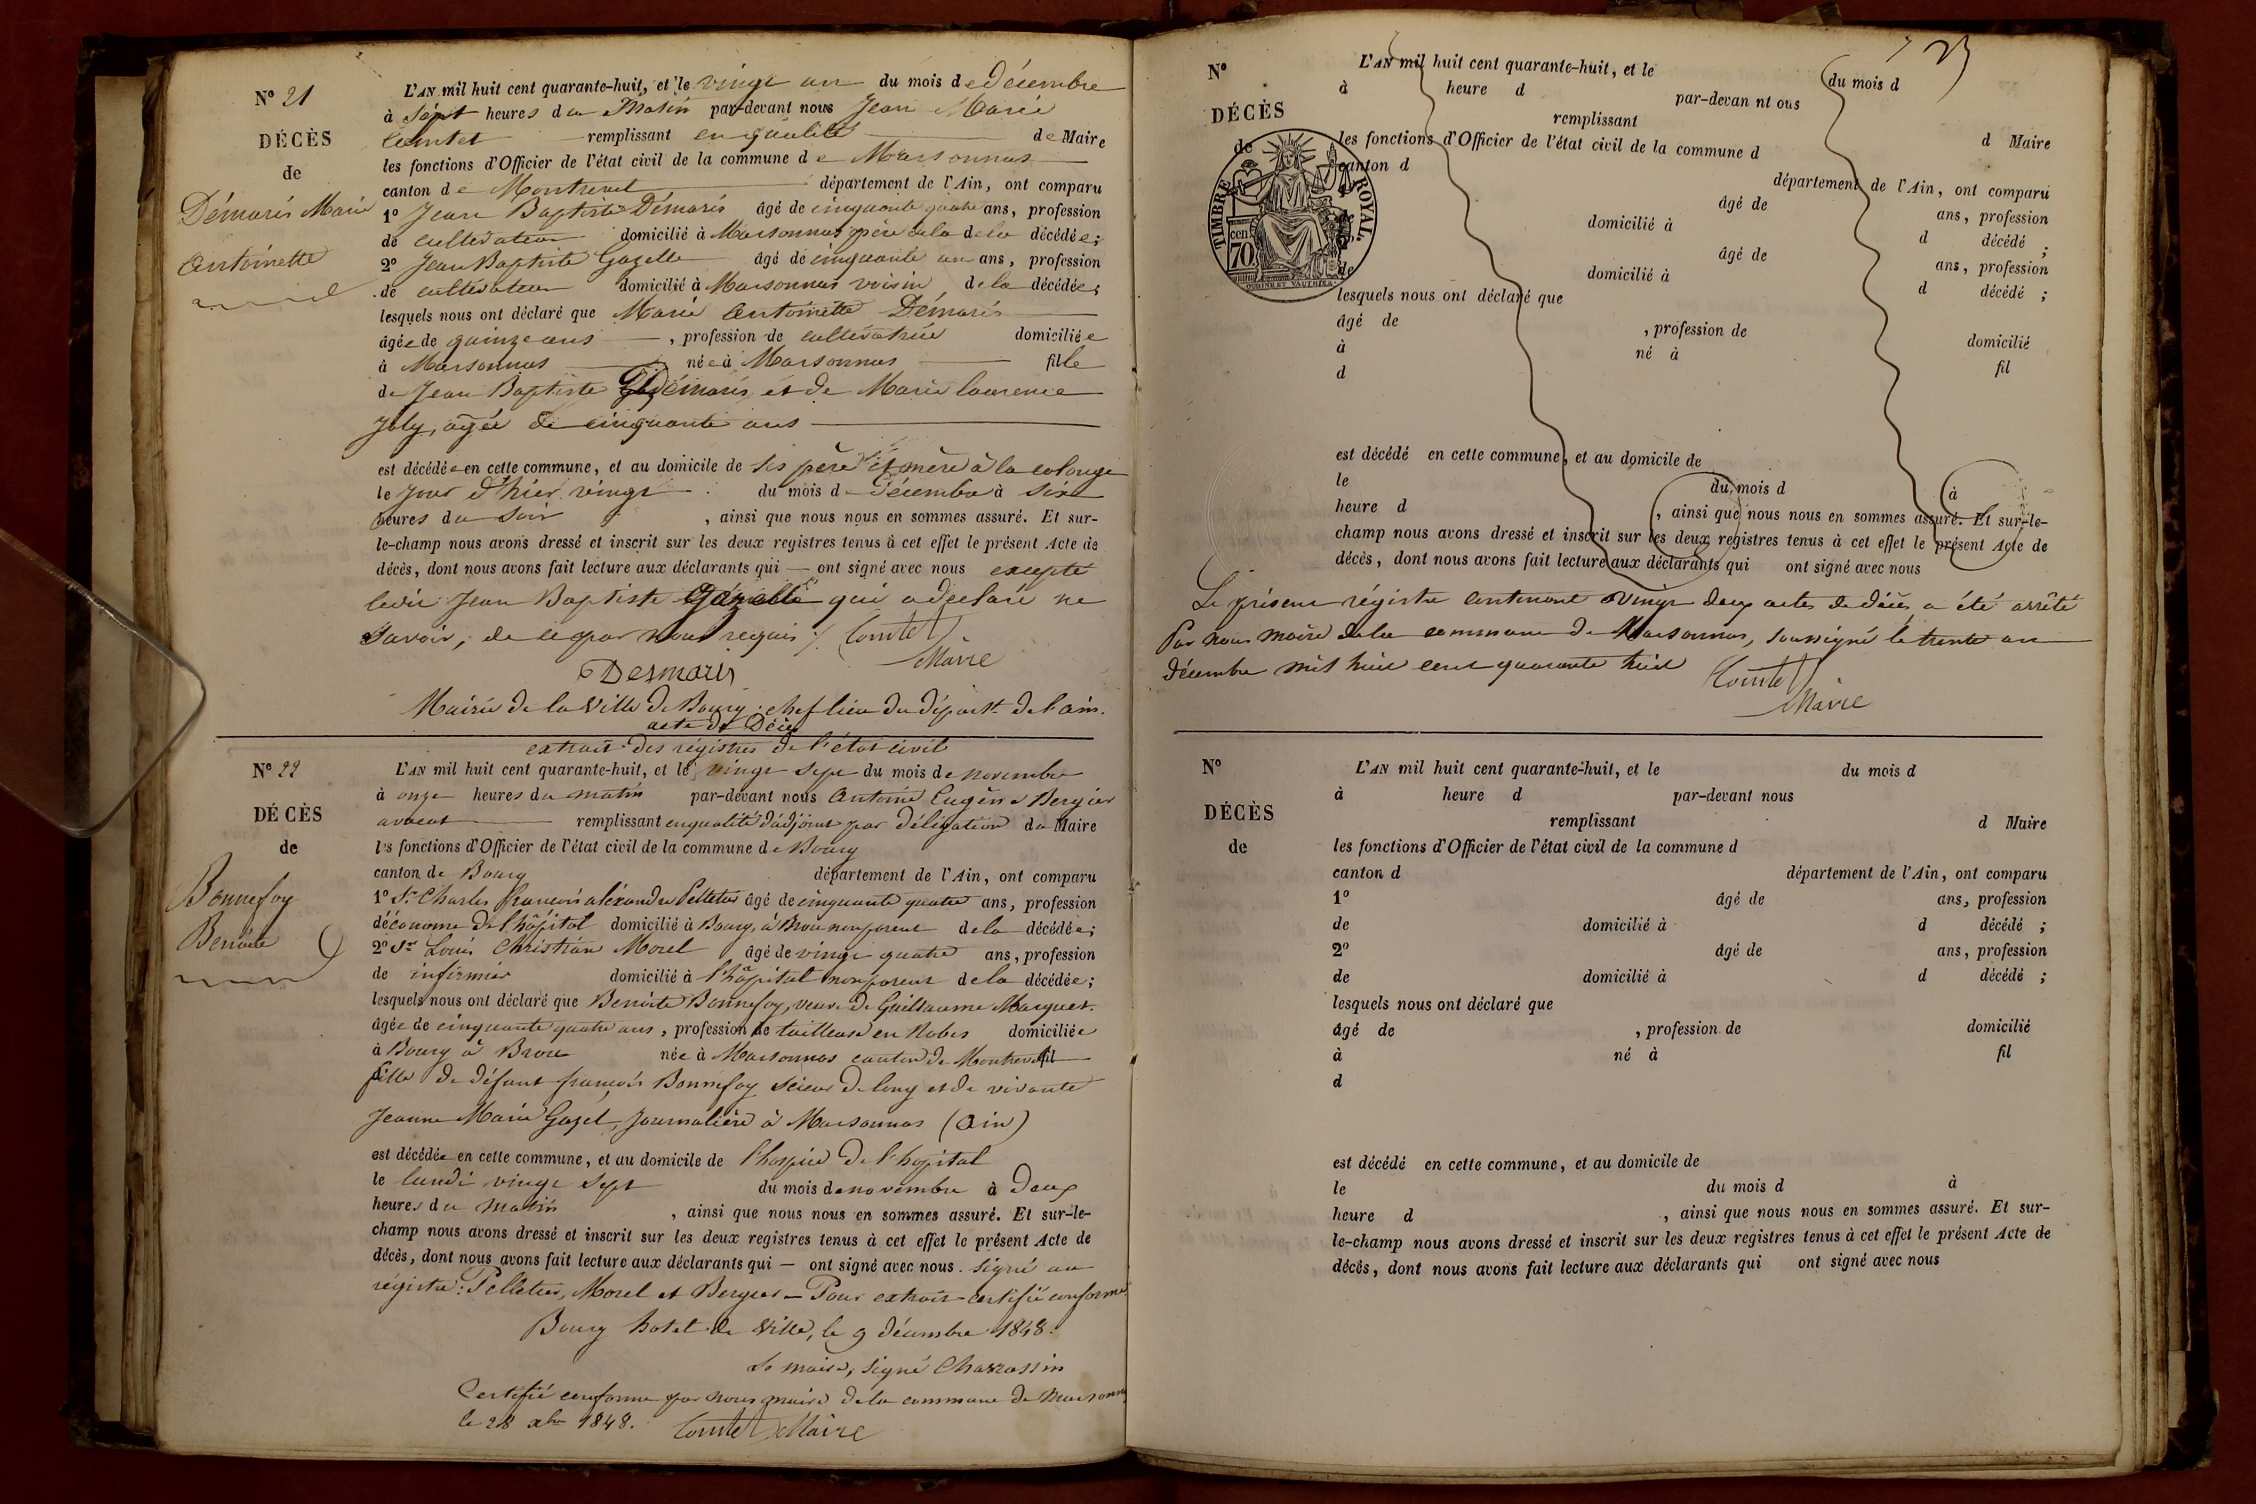 N° 21
DÉCÈS
de
Démaris Marie
Antoinette
L'AN mil huit cent quarante-huit, et le vingt un du mois de Décembre
à Sept heures du Matin par-devant nous Jean Marie
Comtet remplissant en qualité de Maire
les fonctions d'Officier de l'état civil de la commune de Marsonnas
canton de Montrevel département de l'Ain, ont comparu
1° Jean Baptiste Démaris âgé de cinquante quatre ans, profession
de cultivateur domicilié à Marsonnas père de la décédée;
2° Jean Baptiste Gozelle âgé de cinquante un ans, profession
de cultivateur domicilié à Marsonnas voisin de la décédée;
lesquels nous ont déclaré que Marie Antoinette Démaris
âgée de quinze ans, profession de cultivatrice domiciliée
à Marsonnas née à Marsonnas fille
de Jean Baptiste Démaris et de Marie Laurence
Joly, agée de cinquante ans
est décédée en cette commune, et au domicile de ses père et mère à la colonge
le jour d'hier vingt du mois de Décembre à six
heures du soir, ainsi que nous nous en sommes assuré. Et sur-
le-champ nous avons dressé et inscrit sur les deux registres tenus à cet effet le présent Acte de
décès, dont nous avons fait lecture aux déclarants qui — ont signé avec nous excepté
ledit Jean Baptiste Gozelle qui a déclaré ne
savoir, de ce par nous requis ./. Comtet
Maire
Desmaris
Mairie de la Ville de Bourg, chef lieu du départt. de l'ain.
acte de Décès
extrait des régistres de l'état civil
N° 22
DÉCÈS
de
Bonnefoy
Benoite
L'AN mil huit cent quarante-huit, et le vingt sept du mois de novembre
à onze heures du matin par-devant nous Antoine Eugène Bergier
avocat remplissant en qualité d'adjoint par délégation du Maire
les fonctions d'Officier de l'état civil de la commune de Bourg
canton de Bourg département de l'Ain, ont comparu
1° Sr. Charles françois alexandre Pelletier âgé de cinquante quatre ans, profession
d'économe de l'hôpital domicilié à Bourg, à Brou non parent de la décédée;
2° Sr Louis Christian Morel âgé de vingt quatre ans, profession
de infirmier domicilié à l'hôpital non parent de la décédée;
lesquels nous ont déclaré que Benoite Bonnefoy, veuve de Guillaume Marguet.
âgée de cinquante quatre ans, profession de tailleuse en Robes domiciliée
à Bourg à Brou née à Marsonnas canton de Montrevel fil
fille de défunt françois Bonnefoy scieur de long et de vivante
Jeanne Marie Gozel, journalière à Marsonnas (Ain)
est décédée en cette commune, et au domicile de l'hospice de l'hopital
le lundi vingt sept du mois de novembre à Deux
heures du matin, ainsi que nous nous en sommes assuré. Et sur-le-
champ nous avons dressé et inscrit sur les deux registres tenus à cet effet le présent Acte de
décès, dont nous avons fait lecture aux déclarants qui — ont signé avec nous. Signé au
régistre: Pelletier, Morel et Bergier – Pour extrait certifié conforme
Bourg hotel de Ville, le 9 décembre 1848.
Le maire, signé Chassassin
Certifié conforme par nous maire de la commune de Marsonnas
le 28 xbre 1848. Comtet Maire
N°
DÉCÈS
de
TIMBRE ROYAL
70
cen
L'AN mil huit cent quarante-huit, et le du mois d
à heure d par-devan nt ous
remplissant d Maire
les fonctions d'Officier de l'état civil de la commune d
canton d département de l'Ain, ont comparu
âgé de ans, profession
de domicilié à d décédé ;
2° âgé de ans, profession
de domicilié à d décédé ;
lesquels nous ont déclaré que
âgé de , profession de domicilié
à né à fil
d
est décédé en cette commune, et au domicile de
le du mois d à
heure d , ainsi que nous nous en sommes assuré. Et sur-le-
champ nous avons dressé et inscrit sur les deux registres tenus à cet effet le présent Acte de
décès, dont nous avons fait lecture aux déclarants qui ont signé avec nous
Le présent régistre contenant vingt deux actes de décès a été arrêté
Par nous maire de la commune de Marsonnas, soussigné le trente un
décembre mil huit cent quarante huit Comtet
Maire
N°
DÉCÈS
de
L'AN mil huit cent quarante-huit, et le du mois d
à heure d par-devant nous
remplissant d Maire
les fonctions d'Officier de l'état civil de la commune d
canton d département de l'Ain, ont comparu
1° âgé de ans, profession
de domicilié à d décédé ;
2° âgé de ans, profession
de domicilié à d décédé ;
lesquels nous ont déclaré que
âgé de , profession de domicilié
à né à fil
d
est décédé en cette commune, et au domicile de
le du mois d à
heure d , ainsi que nous nous en sommes assuré. Et sur-
le-champ nous avons dressé et inscrit sur les deux registres tenus à cet effet le présent Acte de
décès, dont nous avons fait lecture aux déclarants qui ont signé avec nous